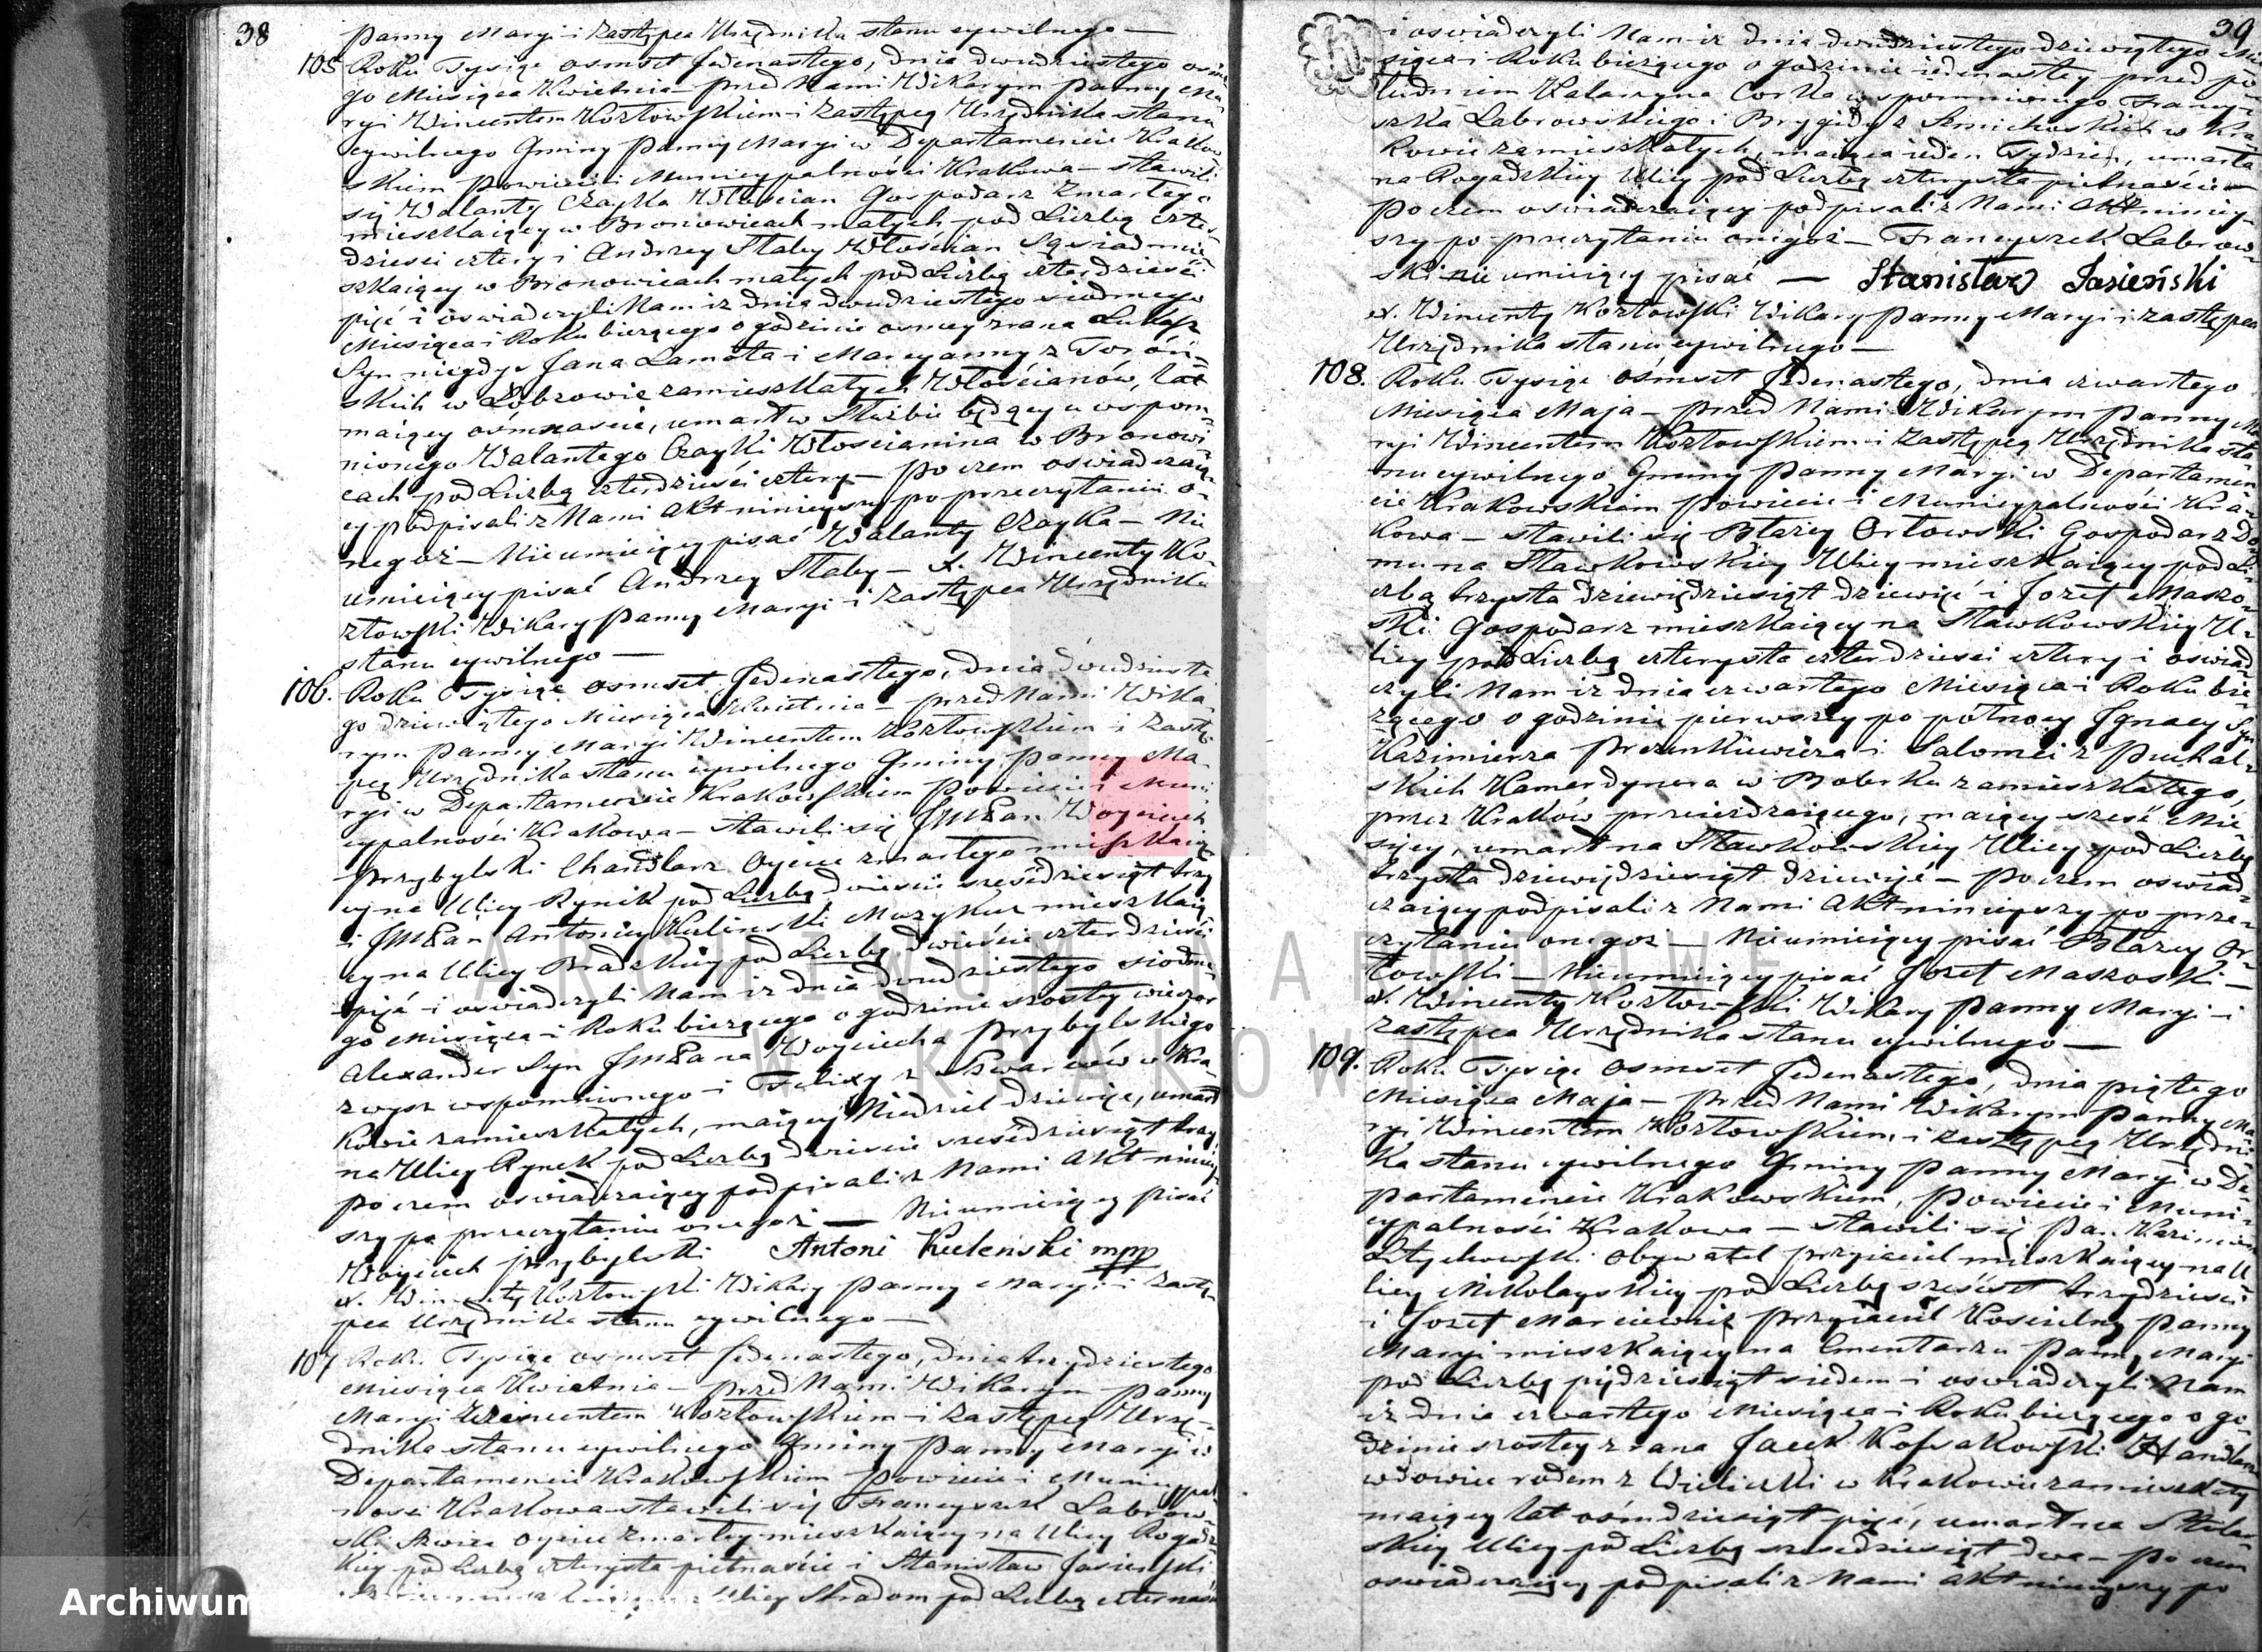 38
Panny Maryi i Zastępca Urzędnika stanu cywilnego —
105 Roku Tysiąc osmset Jedenastego, dnia dwudziestego osme
go Miesiąca Kwietnia — przed Nami Wikarym Panny Ma
ryi Wincentem Kozłowskiem i Zastępcą Urzędnika stanu
cywilnego Gminy Panny Maryi w Departamencie Krakow
skiem Powiecie i Municypalności Krakowa — stawili
się Walanty Czayka Włościan Gospodarz Zmarłego
mieszkaiący w Bronowicach małych pod Liczbą czter
dziesci cztery i Andrzey Słaby Włościan Sąsiad mie
szkaiący w Bronowicach małych pod Liczbą czterdzieści
pięć i oswiadczyli Nam iz dnia dwudziestego siodmego
Miesiąca i Roku bierzącego o godzinie osmey zrana Łukasz
Syn niegdyś Jana Lamota i Maryanny z
skich w Łobzowie zamieszkałych Włościanów, lat
maiący osmnaście, umarł w Służbie będący u wspom
nionego Walantego Czayki Włościanina w Bronowi
cach pod Liczbą czterdzieści cztery — po czem oswiadczaią
cy podpisali z Nami Akt ninieyszy po przeczytaniu o-
negoż — Nieumieiący pisać Walanty Czayka — Nie
umieiący pisać Andrzey Słaby — X. Wincenty Ko-
złowski Wikary Panny Maryi i Zastępca Urzędnika
stanu cywilnego —
106. Roku Tysiąc osmset Jedenastego, dnia dwudzieste
go dziewiątego Miesiąca Kwietnia — przed Nami Wika-
rym Panny Maryi Wincentem Kozłowskiem i Zastę-
pcą Urzędnika stanu cywilnego Gminy Panny Ma-
ryi w Departamencie Krakowskiem Powiecie i Muni
cypalności Krakowa — stawili się JMPan Woyciech
Przybylski Chandlarz Oyciec zmarłego mieszkaią
cy na Ulicy Rynek pod Liczbą dwieście sześćdziesiąt trzy
i JMPan Antoniey Kulinski Muzykus mieszkaią
cy na Ulicy Brackiey pod Liczbą dwieście czterdzieści
pięć i oswiadczyli Nam iz dnia dwudziestego siodme-
go Miesiąca i Roku bierzącego o godzinie szostey wieczor
Alexander Syn JMPana Woyciecha Przybylskiego
zwysz wspomnionego i Felixy z w Kra-
kowie zamieszkałych, maiący Niedziel dziewięć, umarł
na Ulicy Rynek pod Liczbą dwieście sześćdziesiąt trzy
po czem oswiadczaiący podpisali z Nami Akt niniey-
szy po przeczytaniu onegoż — Nieumieiący pisać
Woyciech Przybylski Antoni Kulenski mpp
X. Wincenty Kozłowski Wikary Panny Maryi i Zastę-
pca Urzędnika stanu cywilnego —
107 Roku Tysiąc osmset Jedenastego, dnia trzydziestego
Miesiąca Kwietnia — przed Nami Wikarym Panny
Maryi Wincentem Kozłowskiem i Zastępcą Urzę-
dnika stanu cywilnego Gminy Panny Maryi w
Departamencie Krakowskiem Powiecie i Municypal
nosci Krakowa stawili się Franciszek Labrow-
ski Oyciec Zmarłey mieszkaiący na Ulicy Rogadz
kiey pod Liczbą czterysta pietnaście i Stanisław Jasienski
Ulicy Stradom pod Liczbą czternaście
39
i oswiadczyli Nam iz dnia dwudziestego dziewiątego Mie
siąca i Roku bierzącego o godzinie iedenastey przed po
ludniem Katarzyna Corka wspomnionego Franci-
szka Labrowskiego i Brygidy z w Kra-
kowie zamieszkałych, maiąca ieden Tydzień, umarła
na Rogadzkiey Ulicy pod Liczbą czterysta pietnaście —
Po czem oswiadczaiący podpisali z Nami Akt niniey-
szy po przeczytaniu onegoż — Franciszek Labrow-
ski nie umieiący pisać — Stanisław Jasieński
X. Wincenty Kozłowski Wikary Panny Maryi i Zastępca
Urzędnika stanu cywilnego —
108. Roku Tysiąc ośmset Jedenastego, dnia czwartego
Miesiąca Maja — przed Nami Wikarym Panny Ma
ryi Wincentem Kozłowskiem i Zastępcą Urzędnika sta
nu cywilnego Gminy Panny Maryi w Departamen
cie Krakowskiem Powiecie i Municypalności Kra-
kowa — stawili się Błazey Orłowski Gospodarz Do
mu na Sławkowskiey Ulicy mieszkaiący pod Li
czbą trzysta dziewiędziesiąt dziewięć i Jozef Maszo-
ski Gospodarz mieszkaiący na Sławkowskiey U-
licy pod Liczbą czterysta czterdziesci cztery i oswiad
czyli Nam iz dnia czwartego Miesiąca i Roku bie-
rzącego o godzinie pierwszey po połnocy Ignacy Syn
Kazimierza i Salomei z Puchal-
skich Kamerdynera w Boberku zamieszkałego,
przez Kraków przeiezdzaiącego, maiący sześć Mie
sięcy, umarł na Sławkowskiey Ulicy pod Liczbą
trzysta dziewiędziesiąt dziewięć — po czem oswiad-
czaiący podpisali z Nami Akt ninieyszy po prze-
czytaniu onegoż — Nieumieiący pisać Błazey Or-
łowski — Nieumieiący pisać Jozef Maszoski —
X. Wincenty Kozłowski Wikary Panny Maryi i
Zastępca Urzędnika stanu cywilnego —
109. Roku Tysiąc Osmset Jedenastego, dnia piątego
Miesiąca Maja — przed Nami Wikarym Panny Ma
ryi Wincentem Kozłowskiem i Zastępcą Urzędni
ka stanu cywilnego Gminy Panny Maryi w De-
partamencie Krakowskiem, Powiecie i Muni-
cypalności Krakowa — stawili się Pan Kazimierz
Obywatel przyiaciel mieszkaiący na U
licy Mikolayskiey pod Liczbą sześćset trzydziesci
i Jozef Marciewicz przyiaciel Koscielny Panny
Maryi mieszkaiący na Cmentarzu Panny Maryi
pod Liczbą pięćdziesiąt siedem i oswiadczyli Nam
iz dnia czwartego Miesiąca i Roku bierzącego o go-
dzinie szostey zrana Jacek Kossakowski Handlarz
wdowiec rodem z Wieliczki w Krakowie zamieszkały
maiący lat osmdziesiąt pięć, umarł na
skiey Ulicy pod Liczbą szesdziesiąt dwa — po czem
oswiadczaiący podpisali z Nami Akt ninieyszy po
ARCHIWUM NARODOWE
W KRAKOWIE
Archiwum